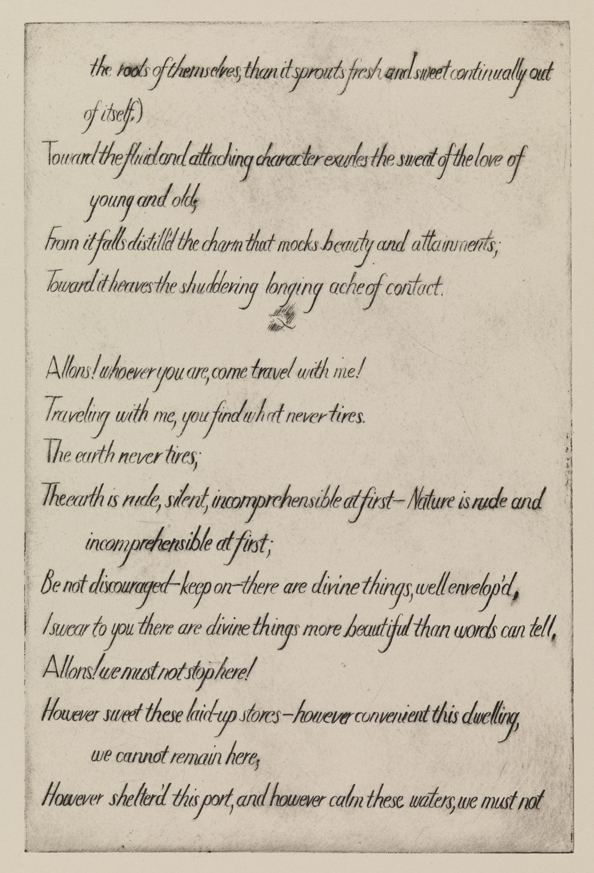 the roots of themselves, than it sprouts fresh and sweet continually out
of itself.)
Toward the fluid and attaching character exudes the sweat of the love of
young and old;
From it falls distill'd the charm that mocks beauty and attainments;
Toward it heaves the shuddering longing ache of contact.
Allons! whoever you are, come travel with me!
Traveling with me, you find what never tires.
The earth never tires;
The earth is rude, silent, incomprehensible at first—Nature is rude and
incomprehensible at first;
Be not discouraged—keep on—there are divine things, well envelop'd,
I swear to you there are divine things more beautiful than words can tell,
Allons! we must not stop here!
However sweet these laid-up stores—however convenient this dwelling,
we cannot remain here;
However shelter'd this port, and however calm these waters, we must not